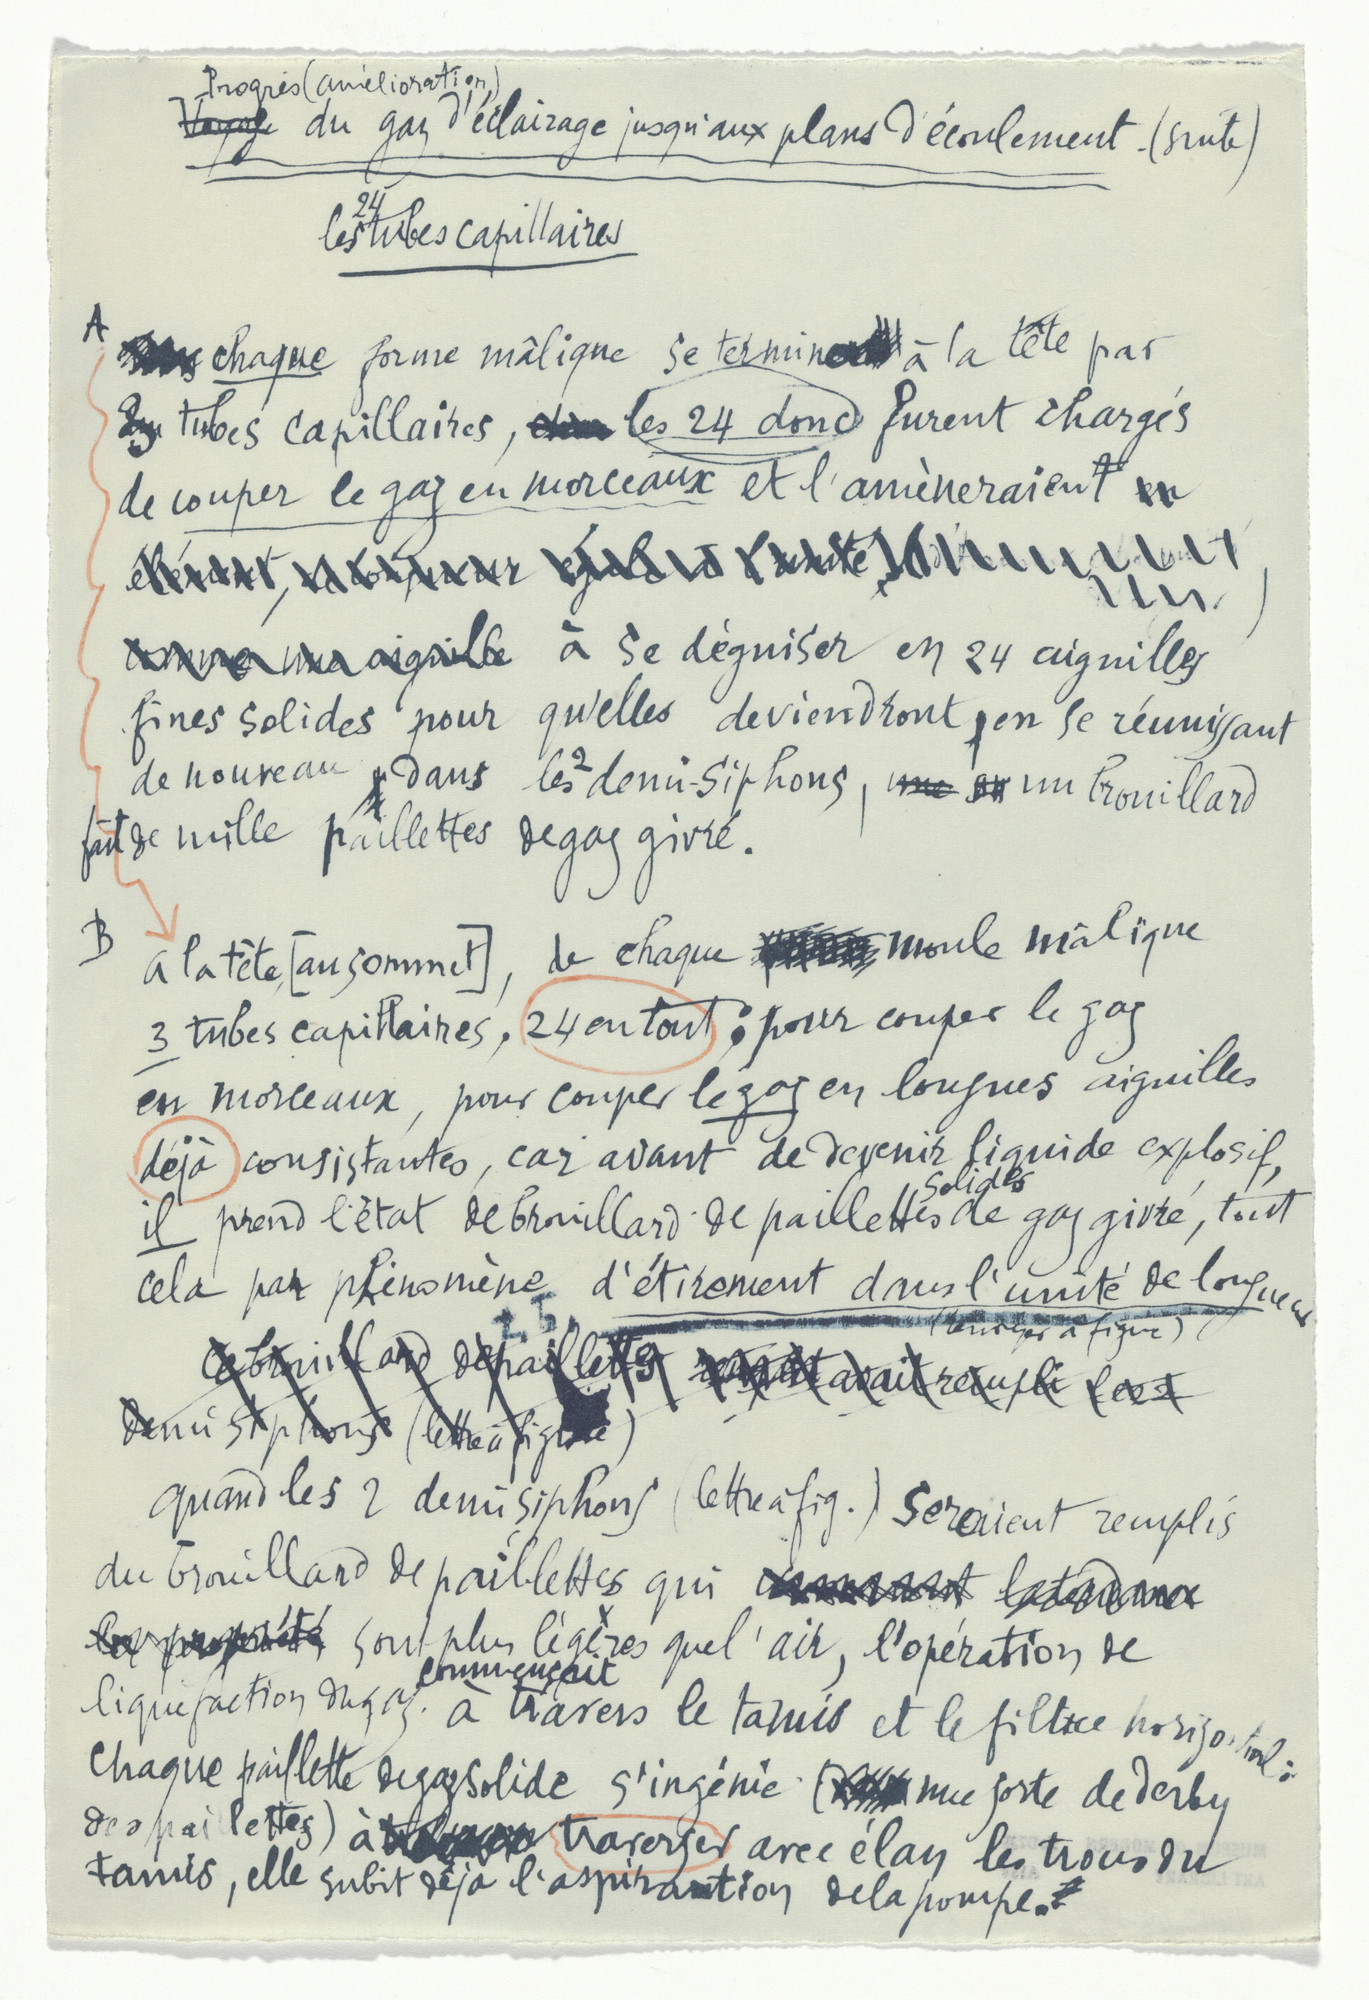 Progrès (amélioration)
Voyage du gaz d'éclairage jusqu'aux plans d'écoulement (suite)
24
les tubes capillaires
A
chaque forme mâlique se termine à la tête par
3 tubes capillaires, les 24 donc furent chargés
de couper le gaz en morceaux et l'amèneraient en
élément,
comme une aiguille à se déguiser en 24 aiguilles
fines solides pour qu'elles deviendront, en se réunissant
de nouveau, dans les 2 demi-siphons, une un brouillard
fait de mille paillettes de gaz givré.
B
à la tête, [au sommet], de chaque moule mâlique
3 tubes capillaires, 24 en tout ; pour couper le gaz
en morceaux, pour couper le gaz en longues aiguilles
déjà consistantes, car avant de devenir liquide explosif,
solides
il prend l'état de brouillard de paillettes de gaz givré, tout
cela par phénomène d'étirement dans l'unité de longueur
(renvoyer à figure)
Ce brouillard de paillettes avait rempli les 2
demi siphons (lettre à figure)
quand les 2 demi siphons (lettre à fig.) seraient remplis
du brouillard de paillettes qui
les propriété sont plus légères que l'air, l'opération de
commençait
liquéfaction du gaz à travers le tamis et le filtre horizontal :
Chaque paillette de gaz solide s'ingénie (une sorte de derby
des paillettes) à traverser avec élan les trous du
tamis, elle subit déjà l'aspiration de la pompe.